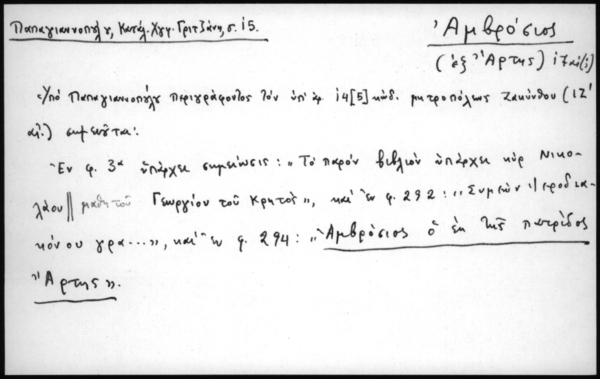 Παπαγιαννοπούλου, Κατάλ. Χγφ. Γριτζάνη, σ. 15.
Ἀμβρόσιος
(ἐξ Ἄρτης) ιζ αἰ(;)
Ὑπὸ Παπαγιαννοπούλου περιγράφοντος τὸν ὑπ' ἀρ. 14[5] κώδ. μητροπόλεως Ζακύνθου (ΙΖ'
αἰ.) σημειοῦται:
Ἐν φ. 3α ὑπάρχει σημείωσις: „Τὸ παρὸν βιβλίον ὑπάρχει κὺρ Νικο-
λάου || μαθητοῦ Γεωργίου τοῦ Κρητὸς", καὶ ἐν φ. 292: „Συμεὼν ἱεροδια-
κόνου γρα...", καὶ ἐν φ. 294: „Ἀμβρόσιος ὁ ἐκ τῆς πατρίδος
Ἄρτης".